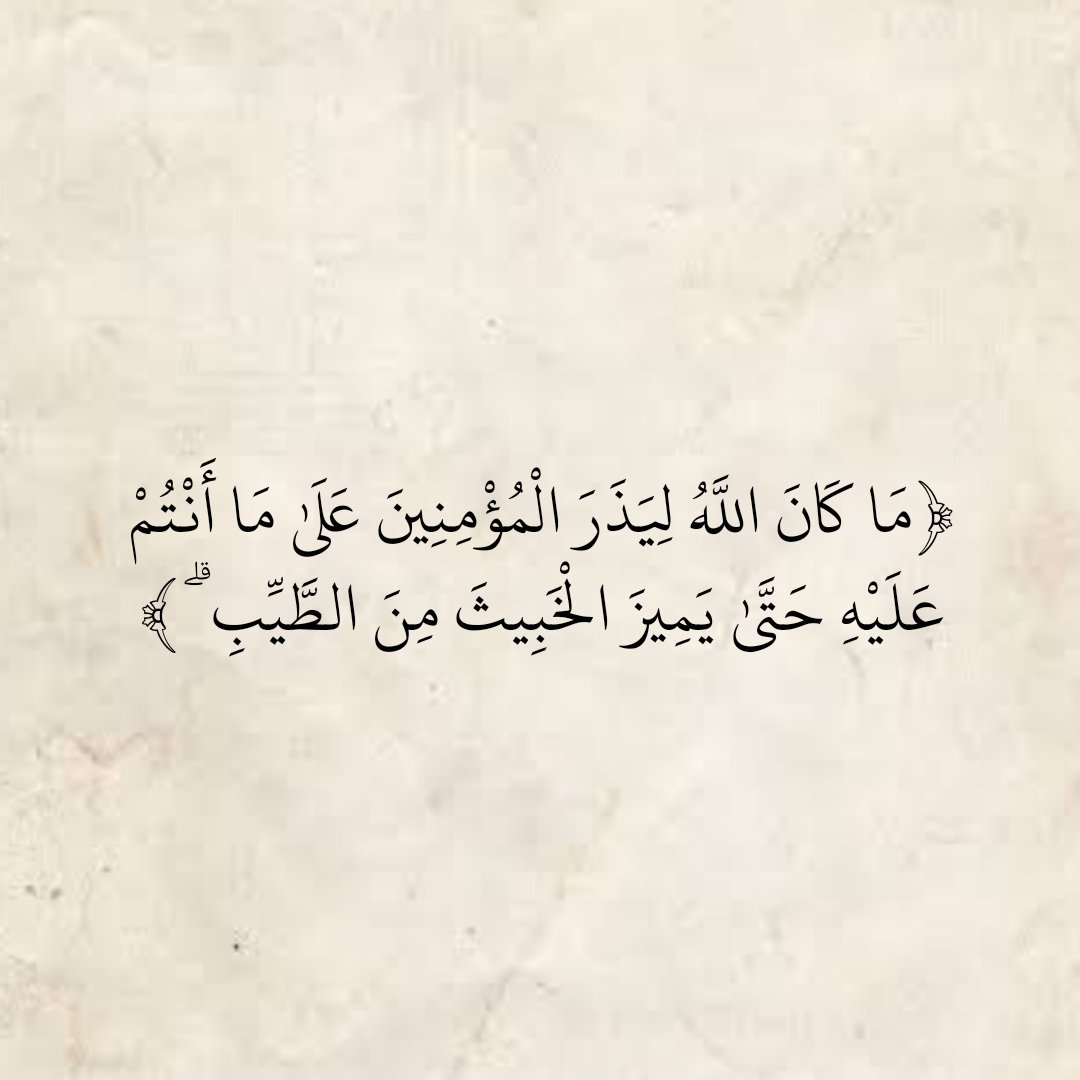 ﴿مَا كَانَ اللَّهُ لِيَذَرَ الْمُؤْمِنِينَ عَلَىٰ مَا أَنْتُمْ
عَلَيْهِ حَتَّىٰ يَمِيزَ الْخَبِيثَ مِنَ الطَّيِّبِ ۗ﴾